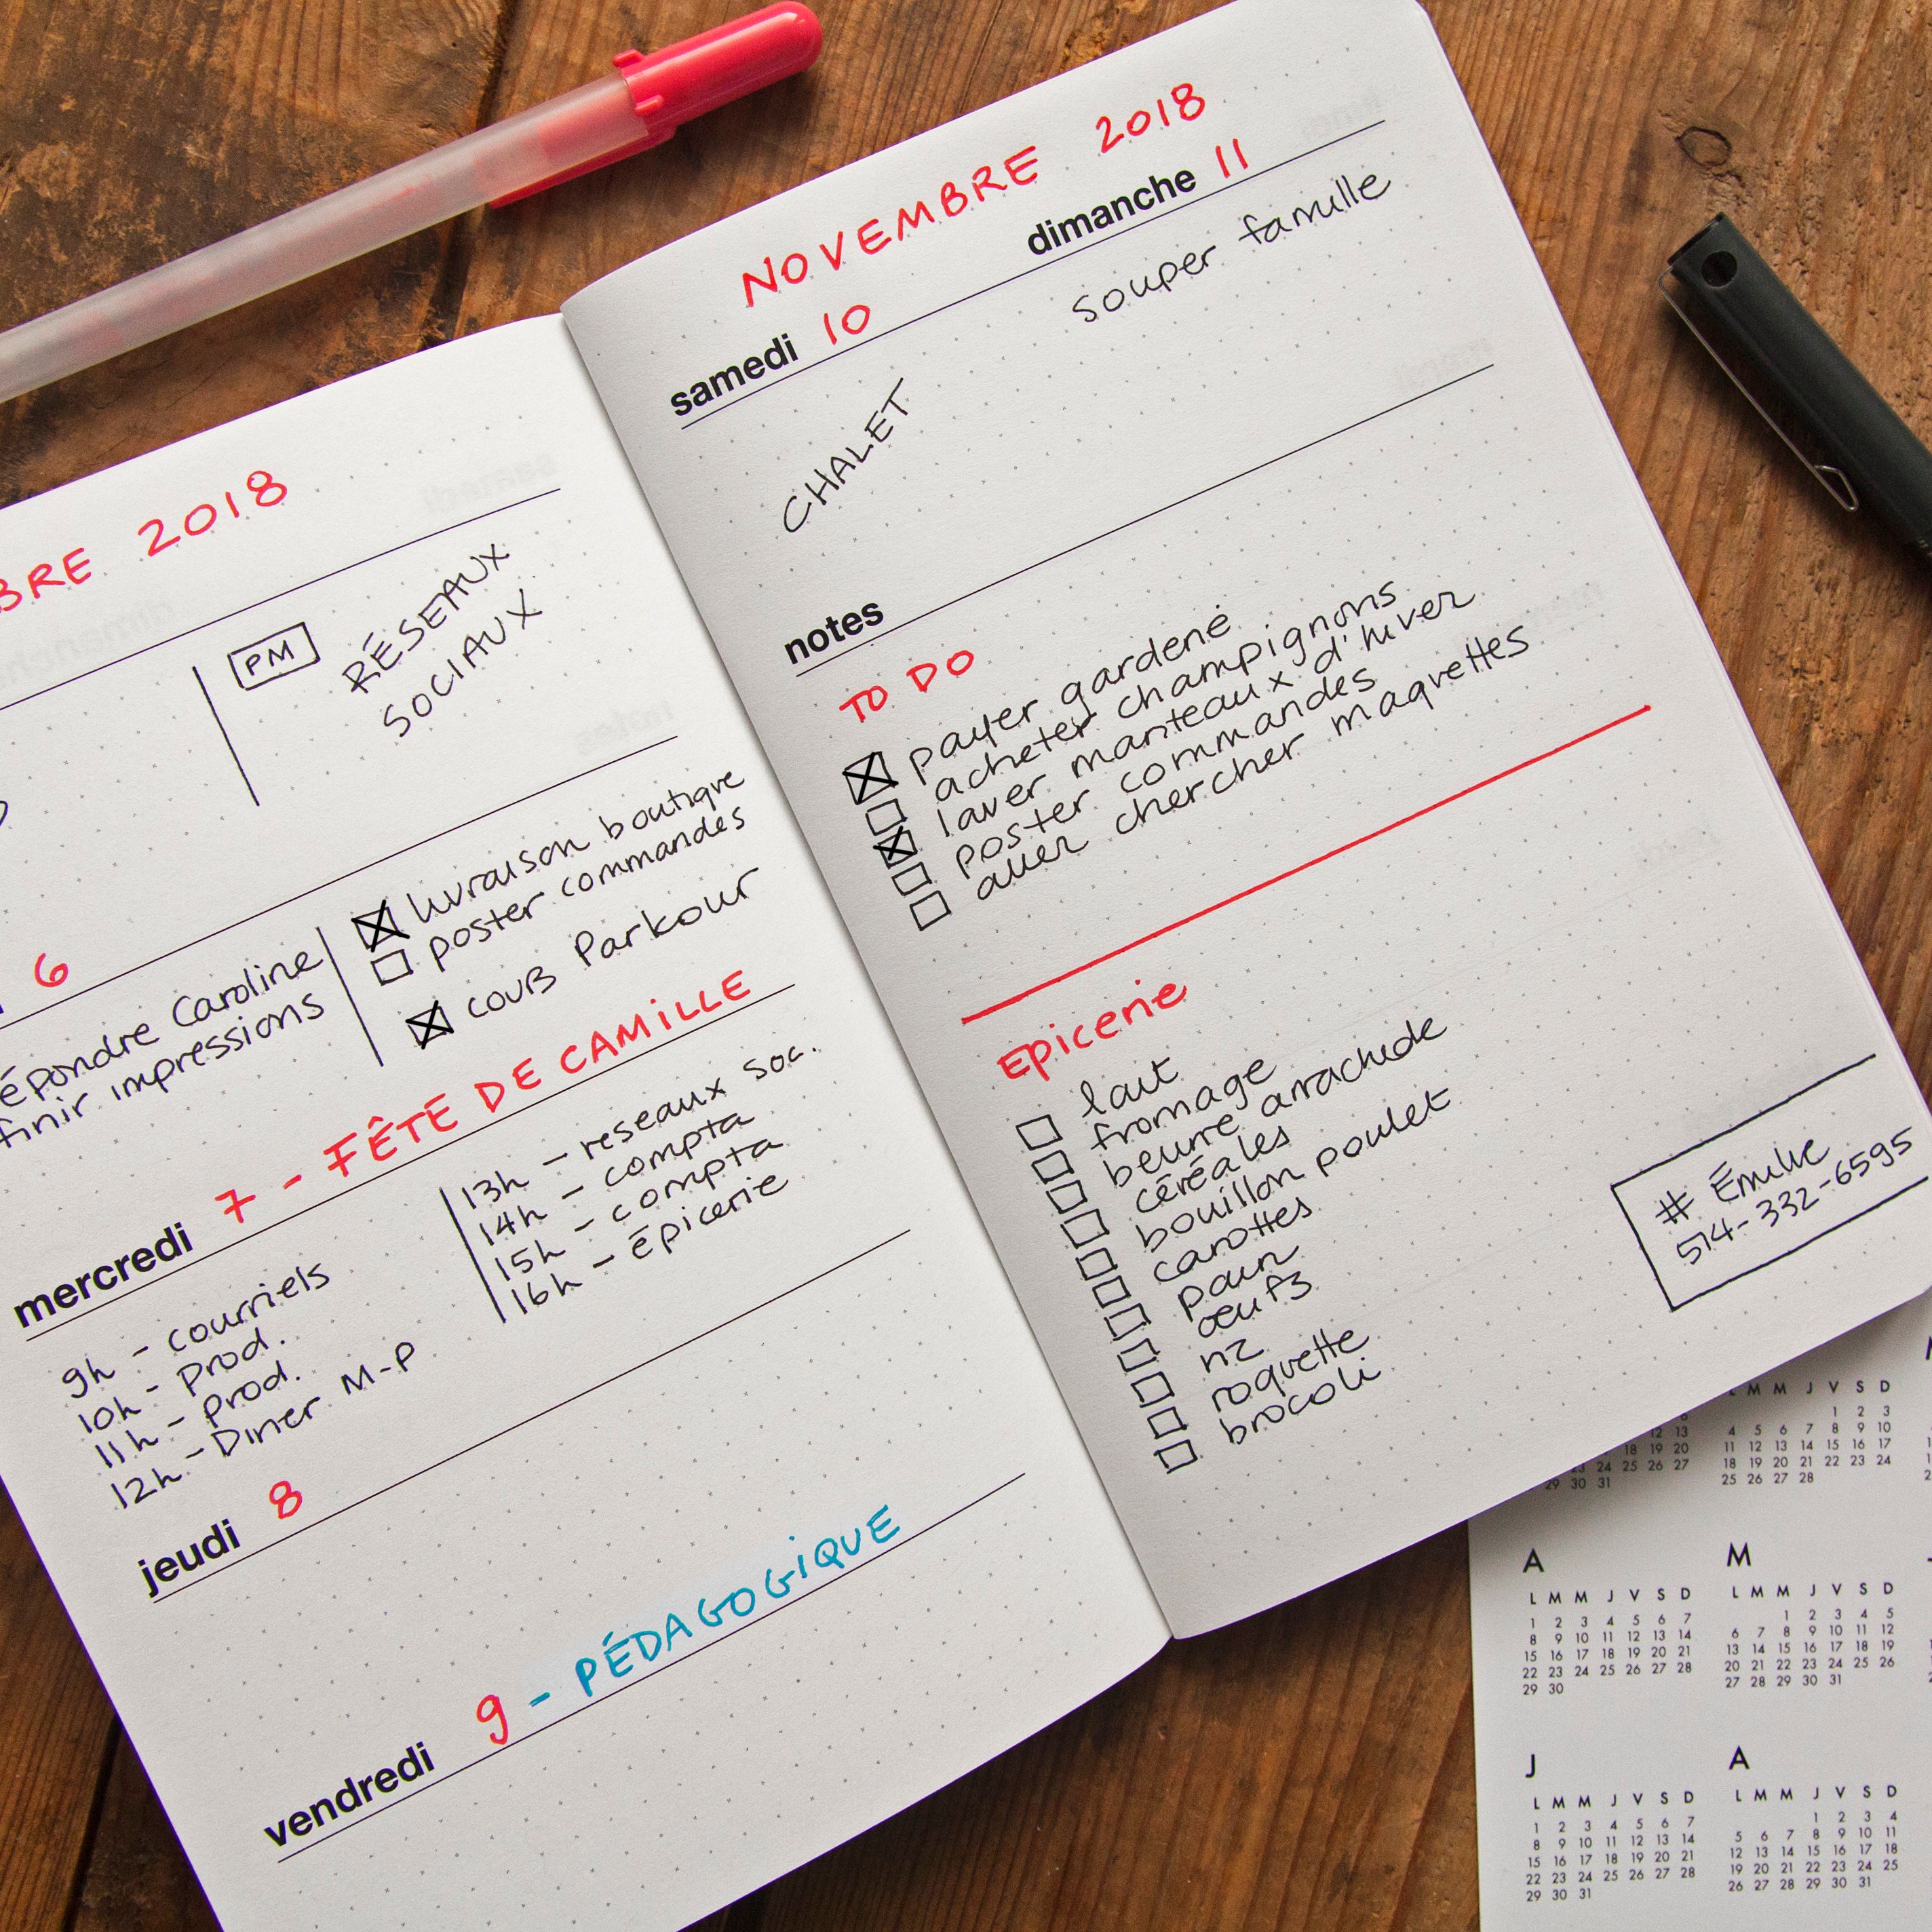 BRE 2018
PM
RÉSEAUX
SOCIAUX
6
épondre Caroline
finir impressions
livraison boutique
poster commandes
cours Parkour
mercredi 7 - FÊTE DE CAMILLE
9h - courriels
10h - Prod.
11h - Prod.
12h - Diner M-P
13h - reseaux soc.
14h - compta
15h - compta
16h - épicerie
jeudi 8
vendredi 9 - PÉDAGOGIQUE
NOVEMBRE 2018
samedi 10
CHALET
dimanche 11
souper famille
notes
TO DO
payer garderie
acheter champignons
laver manteaux d'hiver
poster commandes
aller chercher maquettes
Epicerie
lait
fromage
beurre arachide
céréales
bouillon poulet
carottes
pain
oeufs
riz
roquette
brocoli
# Émilie
514-332-6595
L M M J V S D
6
12 13
18 19 20
23 24 25 26 27
29 30 31
L M M J V S D
1 2 3
4 5 6 7 8 9 10
11 12 13 14 15 16 17
18 19 20 21 22 23 24
25 26 27 28
A
L M M J V S D
1 2 3 4 5 6 7
8 9 10 11 12 13 14
15 16 17 18 19 20 21
22 23 24 25 26 27 28
29 30
M
L M M J V S D
1 2 3 4 5
6 7 8 9 10 11 12
13 14 15 16 17 18 19
20 21 22 23 24 25 26
27 28 29 30 31
J
L M M J V S D
1 2 3 4 5 6 7
8 9 10 11 12 13 14
15 16 17 18 19 20 21
22 23 24 25 26 27 28
29 30 31
A
L M M J V S D
1 2 3 4
5 6 7 8 9 10 11
12 13 14 15 16 17 18
19 20 21 22 23 24 25
26 27 28 29 30 31